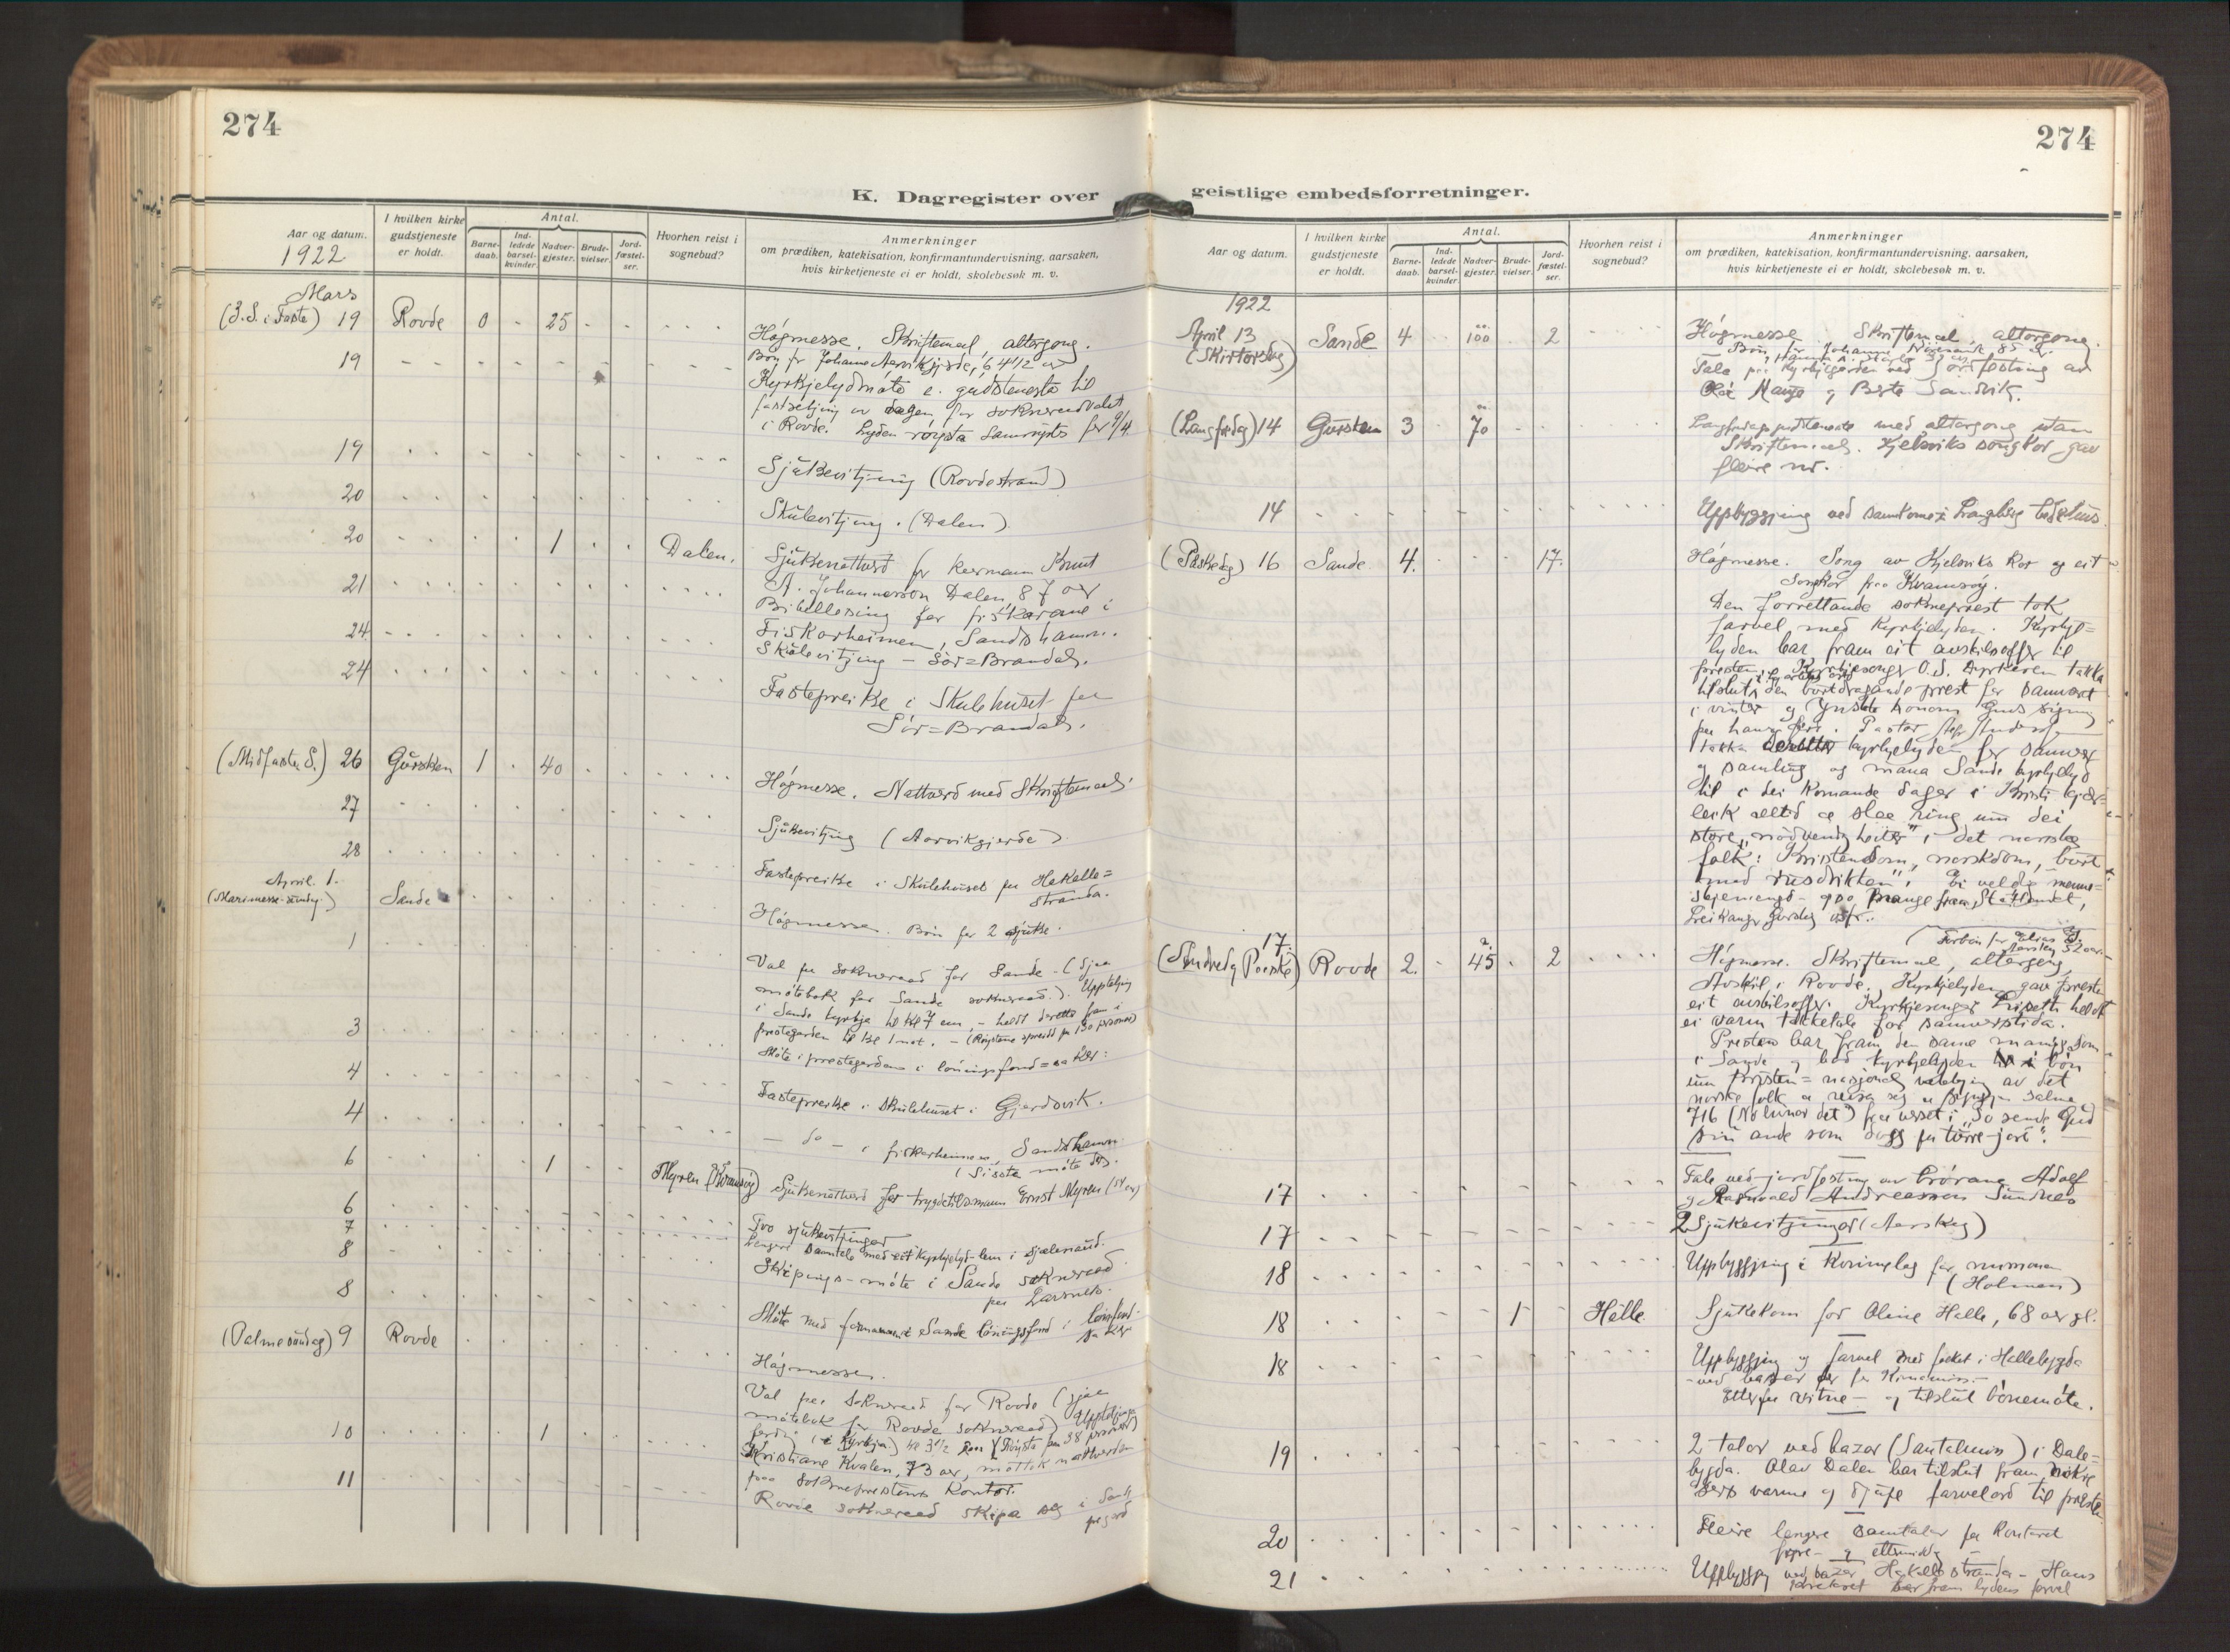 274
K. Dagregister over
Aar og datum.
1922
I hvilken kirke gudstjeneste er holdt.
Antal.
Barne-daab.
Ind-ledede barsel-kvinder.
Nadver-gjester.
Brude-vielser.
Jord-fæstel-ser.
Hvorhen reist i sognebud?
Anmerkninger
om prædiken, katekisation, konfirmantundervisning, aarsaken,
hvis kirketjeneste ei er holdt, skolebesøk m. v.
Mars
(3. S. i Faste) 19 Rovde 0 - 25
Høgmesse. Skriftemaal, altergong.
Bøn fr Johanne Aarvikgjerde, 64 1/2 aar
19
Kyrkjelydmøte e. gudstenesta til
fastsetjing av dagen for sokneraadvalet
i Rovde. Lyden røysta samrøystes for 9/4.
19
Sjukevitjing (Rovdestrand)
20
Skulevitjing. (Dalen)
20 1 Dalen.
Sjukenattverd for kaarmann Knut
A. Johannesson Dalen 87 aar
21
Bibellesing for fiskarane i
Fiskarheimen, Sandshamn.
24
Skulevitjing - Sør=Brandal.
24
Fastepreike i Skulehuset paa
Sør=Brandal.
(Midfaste S.) 26 Gursken 1 - 40
Høgmesse. Nattverd med Skriftemaal
27
Sjukevitjing (Aarvikgjerde)
28
Fastepreike i Skulehuset paa Hakalle=
stranda.
April. 1.
(Mariamesse-sundag) Sande
Høgmesse. Bøn for 2 sjuke.
1
Val paa sokneraad for Sande - (Sjaa
møtebok for Sande sokneraad). Uppteljing
i Sande kyrkja til kl 7 em, - heldt deretter fram i
prestegarden til kl 1 nat. - (Røystene spreidd på 130 personar)
3
Møte i prestegarden i løningsfond=saker:
4
Fastepreike i skulehuset i Gjerdsvik.
4
- do - i fiskarheimen, Sandshamn
(Siste møte der.
6 1 Myren (Kvamsøy)
Sjukenattverd for trygdetilsmann Ernst Myren (54 aar)
6
Tvo sjukevitjingar
7
Lengre samtale med eit kyrkjelyd-lem i sjælenaud.
8
Skipings-møte i Sande sokneraad
paa Larsnes.
8
Møte med formannen i Sande løningsfond i lønsfond-
saker
(Palmesundag) 9 Rovde
Høgmesse.
Val paa Sokneraad for Rovde (sjaa
møtebok for Rovde sokneraad) Uppteljinga
ferdig (i Kyrkja) kl 3 1/2 (Røysta paa 38 personar)
10 1
Kristiane Kvalen, 73 aar, mottok nattverden
paa Sokneprestens Kontor.
11
Rovde sokneraad skipa seg i Sande
p.gard
274
geistlige embedsforretninger.
Aar og datum.
I hvilken kirke gudstjeneste er holdt.
Antal.
Barne-daab.
Ind-ledede barsel-kvinder.
Nadver-gjester.
Brude-vielser.
Jord-fæstel-ser.
Hvorhen reist i sognebud?
Anmerkninger
om prædiken, katekisation, konfirmantundervisning, aarsaken,
hvis kirketjeneste ei er holdt, skolebesøk m. v.
1922
April 13 Sande 4 100 2
(Skirtorsdag)
Høgmesse. Skriftemaal, altergong.
Bøn for Johanne 85 aar
Tala paa Kyrkjegarden ved jordfesting av
Hauge og Sandvik.
(Langfredag) 14 Gursken 3 70
Langfredagsgudsteneste med altergong utan
Skriftemaal. Kjelsviks songkor gav
fleire nr.
14
Uppbyggjing ved samkoma i Langberg bedehus.
(Paaskedag) 16 Sande 4. 17.
Høgmesse. Song av Kjelsviks Kor og eit
songkor fraa Kvamsøy.
Den forrettande sokneprest tok
farvel med Kyrkjelyden. Kyrkje=
lyden bar fram eit avskilsoffer til
presten, Kyrkjesongar O. S. takka
tilslutt den burtdragande prest for samværet
i vinter og ynskte honom Guds signing
paa hans ferd. Pastor
takka kyrkjelyden for samvær
og samling og mana Sande kyrkjelyd
til i dei komande dagar i Kristi kjær=
leik alltid aa slaa ring um dei
store "nødvendigheiter" i det norske
folk: Kristendom, norskdom, burt
med rusdrikken". Ei veldig menne=
skjemengd - 900 mange fraa Stadlandet,
Leikanger Gurskøy osfr..
17.
(Andredag Paaske) Rovde 2. - 45 2
(Forbøn for Elias
52 aar.
Høgmesse. Skriftemaal, altergong,
Avskil i Rovde. Kyrkjelyden gav presten
eit avskilsoffer. Kyrkjesongar heldt
ei varm takketale for samværstida.
Presten bar fram den same maning som
i Sande og bad kyrkjelyden i bøn
um kristen=nasjonal vekkjing av det
norske folk aa reisa seg og syngja salme
716 (No livnar det) fraa verset: "So sende Gud
sin ande som dogg paa tørre-jord".
17
Tale ved jordfesting av brørane Adolf
og Ragnvald Andreassen Sundnes
17
2 Sjukevitjingar (Aarskog)
18
Uppbyggjing i Kvinnelag for misjonen
(Holmen)
18 1 Halle
Sjukekom for Oline Halle, 68 aar gl.
18
Uppbyggjing og farvel med folket i Hallebygda
- ved basar der for Kinamisj.-
Etterpaa vitne- og tilslut bønemøte.
19
2 talar ved bazar (Santalmisj) i Dale=
bygda. Olav Dalen bar tilslut fram nokre
varme og djupe farvelord til presten
20
Fleire lengre samtaler paa Kontoret
fyre- og ettermiddag
21
Uppbyggjing ved bazar Hakallestranda - Hans
bar fram lydens farvel